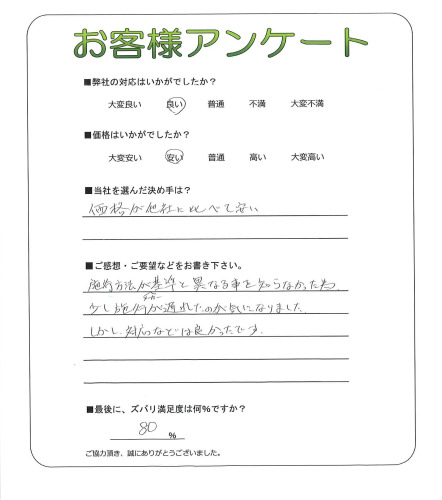 お客様アンケート
■弊社の対応はいかがでしたか？
大変良い 良い 普通 不満 大変不満
■価格はいかがでしたか？
大変安い 安い 普通 高い 大変高い
■当社を選んだ決め手は？
価格が他社に比べて安い
■ご感想・ご要望などをお書き下さい。
施術方法が基準と異なる事を知らなかった為
少し施術が遅れたのが気になりました
しかし、対応などは良かったです。
■最後に、ズバリ満足度は何%ですか？
80 %
ご協力頂き、誠にありがとうございました。